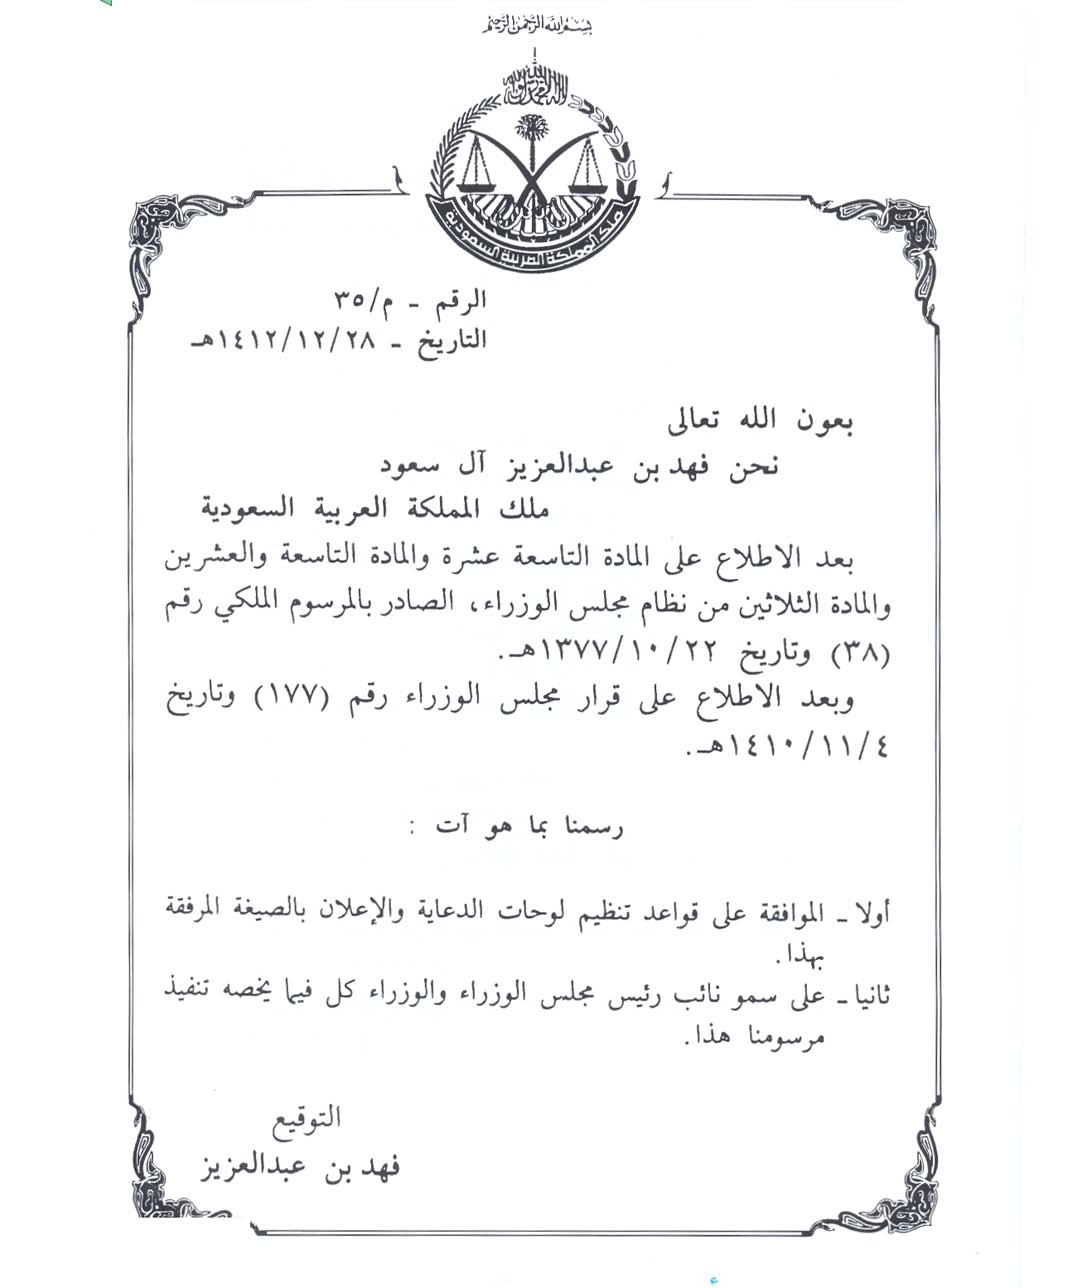 بسم الله الرحمن الرحيم
ملك المملكة العربية السعودية
الرقم - م/٣٥
التاريخ - ١٤١٢/١٢/٢٨هـ
بعون الله تعالى
نحن فهد بن عبدالعزيز آل سعود
ملك المملكة العربية السعودية
بعد الاطلاع على المادة التاسعة عشرة والمادة التاسعة والعشرين
والمادة الثلاثين من نظام مجلس الوزراء، الصادر بالمرسوم الملكي رقم
(٣٨) وتاريخ ١٣٧٧/١٠/٢٢هـ.
وبعد الاطلاع على قرار مجلس الوزراء رقم (١٧٧) وتاريخ
١٤١٠/١١/٤هـ.
رسمنا بما هو آت :
أولا - الموافقة على قواعد تنظيم لوحات الدعاية والإعلان بالصيغة المرفقة
بهذا.
ثانيا - على سمو نائب رئيس مجلس الوزراء والوزراء كل فيما يخصه تنفيذ
مرسومنا هذا.
التوقيع
فهد بن عبدالعزيز